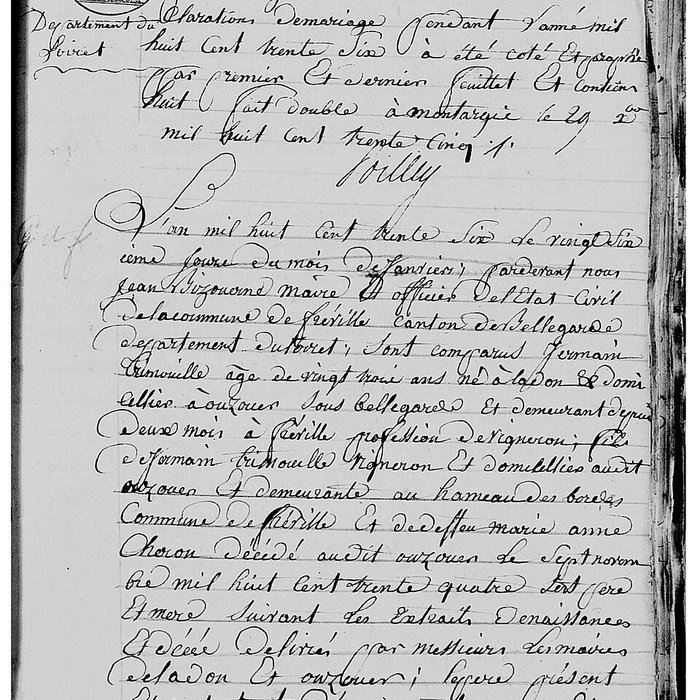 Département du
Loiret
clarations de mariage pendant l'anné mil
huit Cent trente Six à été coté Et paraphé
par premier Et dernier feuillet Et Contien
huit fait double à montargie le 29 Xbre
mil huit Cent trente Cinq
L'an mil huit Cent trente Six le vingt Six
ieme Jour du mois de Janvier; pardevant nous
Jean Bizouerne maire Et officier de l'Etat Civil
de la commune de fréville canton de Bellegarde
département du Loiret; Sont comparus Germain
trimouille âge de vingt trois ans né à ladon & domi
cillier à ouzouer Sous bellegarde Et demeurant depuis
deux mois à fréville profession de vigneron; fils
de Germain trimouille vigneron Et domicilliés audit
ouzouer Et demeurante au hameau des bordes
Commune de fréville Et de deffeu marie anne
Choron décédé audit ouzouer le Sept novem
bre mil huit Cent trente quatre Sest pere
Et mere Suivant les Extraits denaissances
Et décée delivrés par messieurs les maires
de ladon Et ouzouer; le pere présent